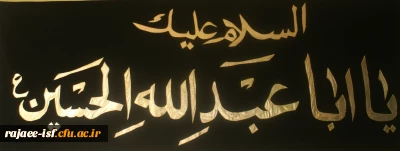 السلام علیك
یا ابا عبدالله الحسین ع
rajaee-isf.cfu.ac.ir